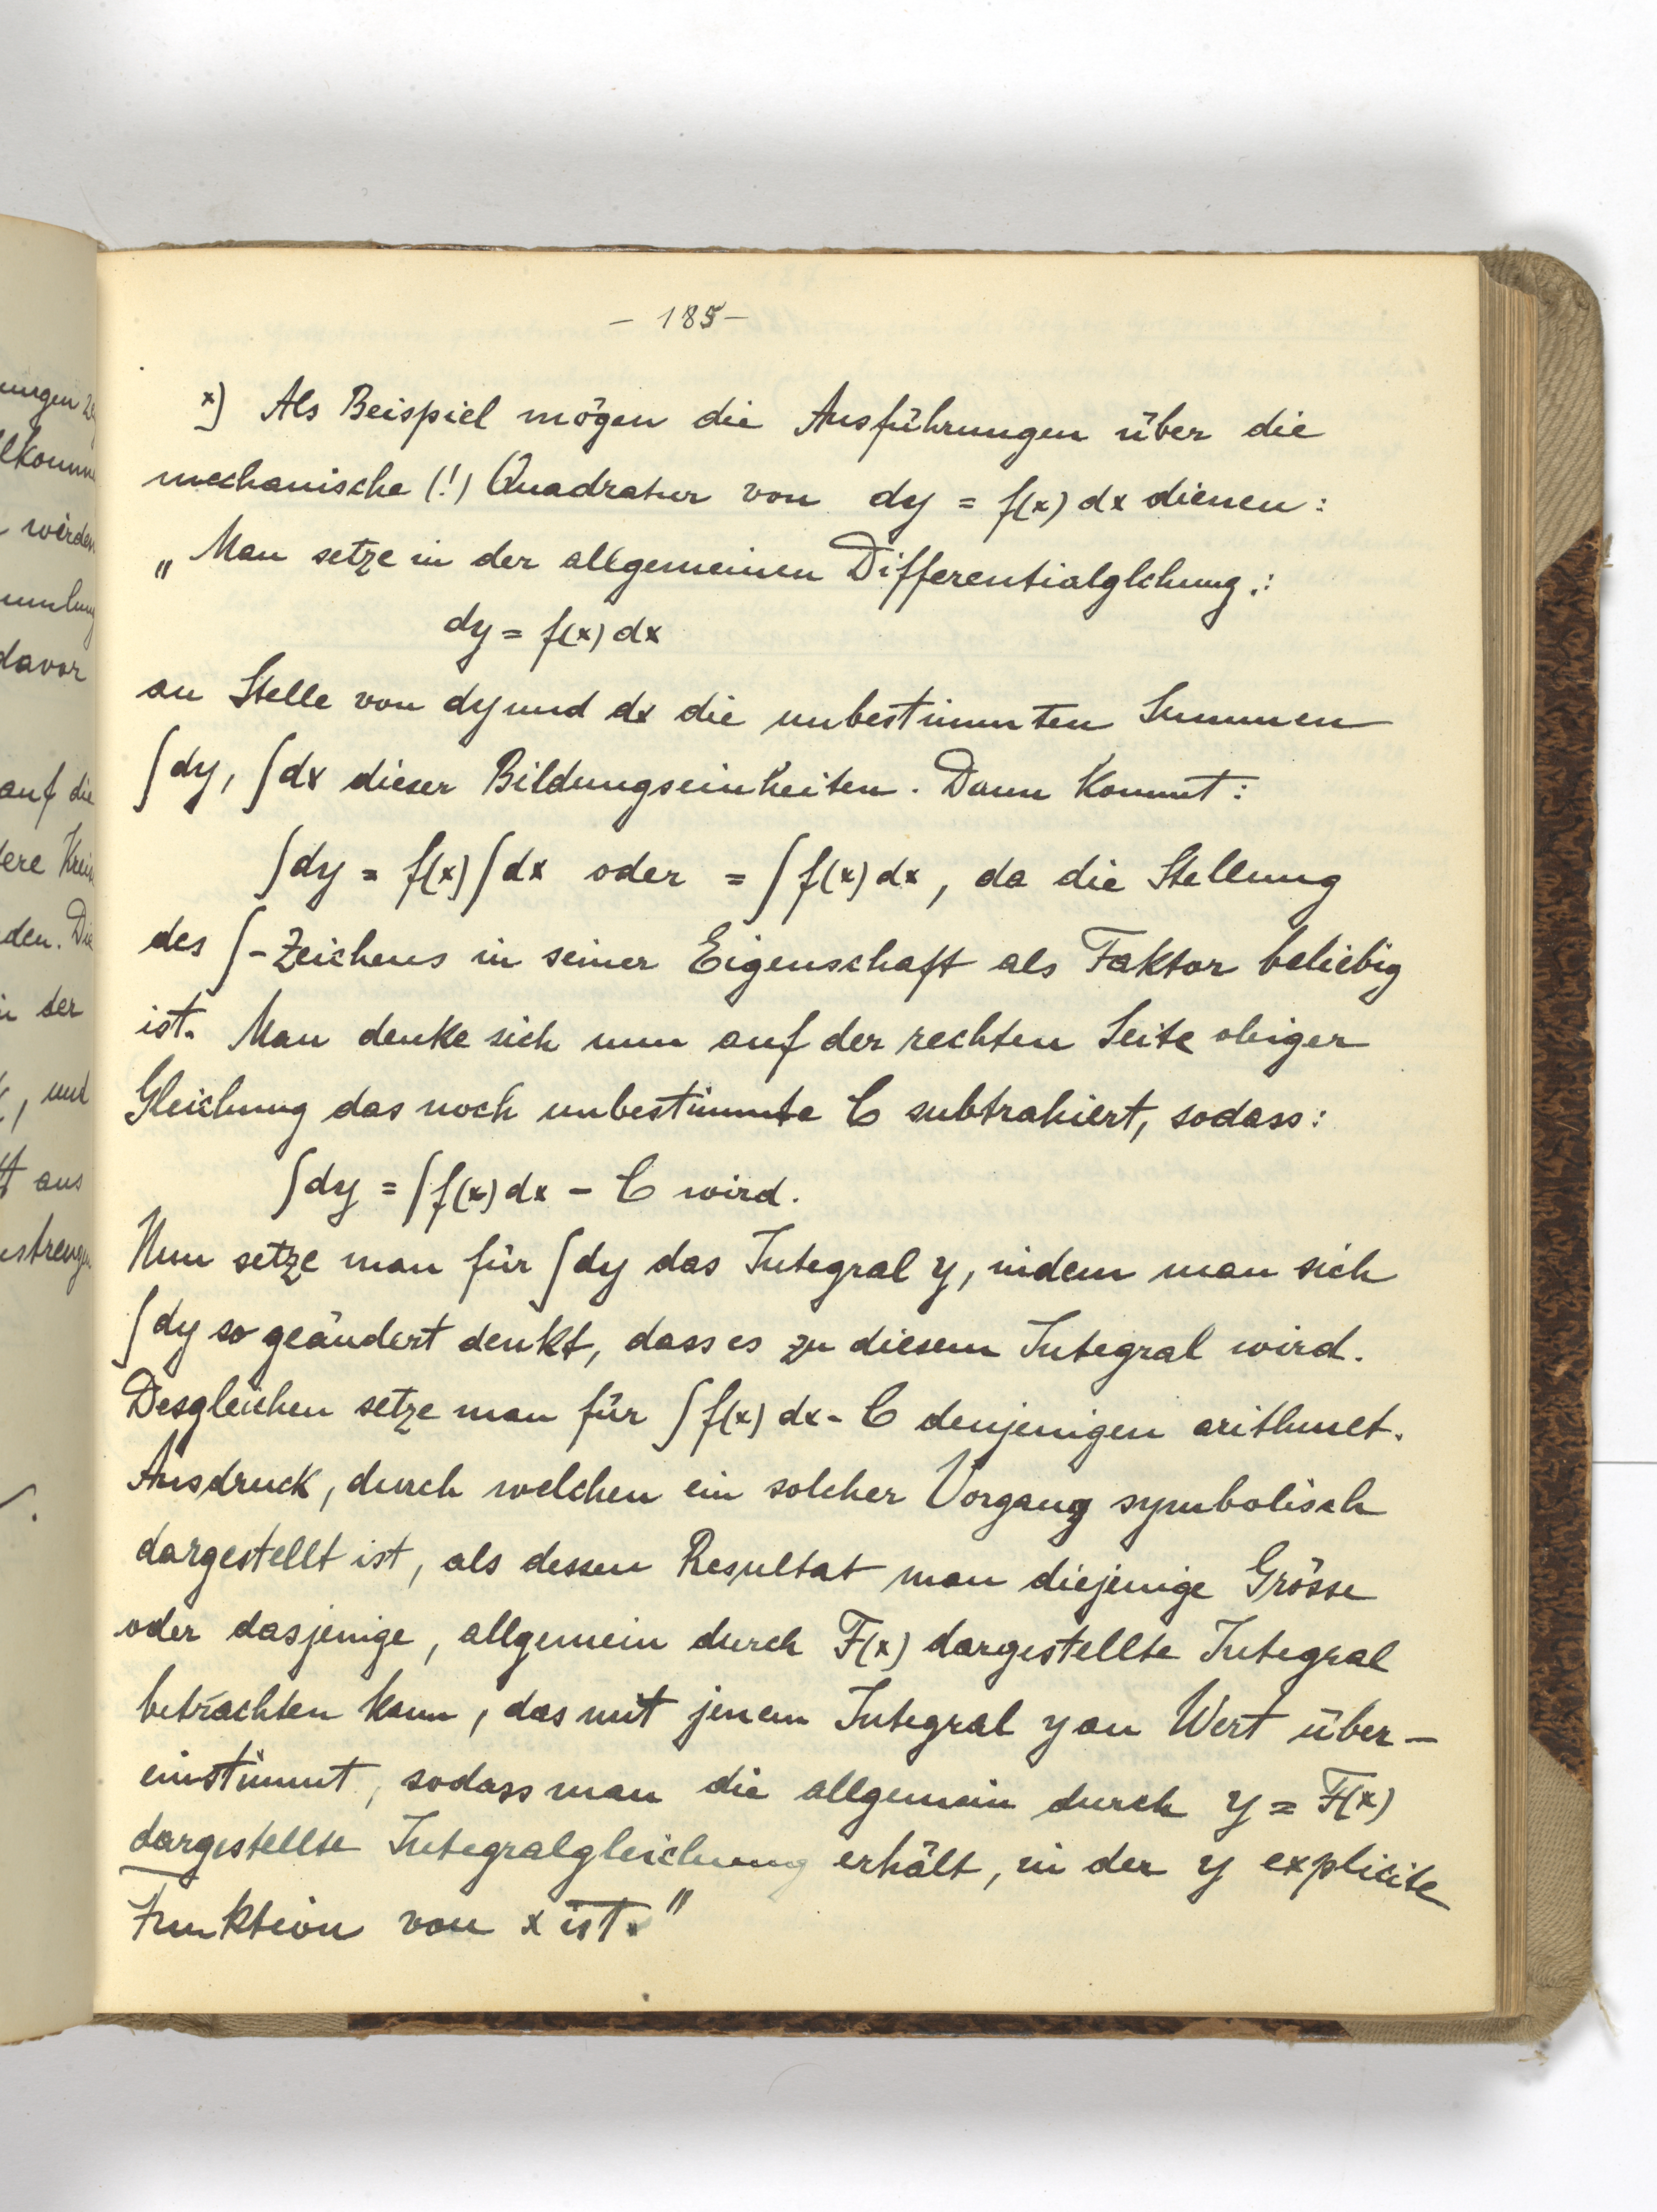 – 185 –
x) Als Beispiel mögen die Ausführungen über die
mechanische (!) Quadratur von dy = f(x) dx dienen:
„Man setze in der allgemeinen Differentialglchung.:
dy = f(x) dx
an Stelle von dy und dx die unbestimmten Summen
∫dy, ∫dx dieser Bildungseinheiten. Dann kommt:
∫dy = f(x)∫dx oder = ∫f(x)dx, da die Stellung
des ∫-Zeichens in seiner Eigenschaft als Faktor beliebig
ist. Man denke sich nun auf der rechten Seite obiger
Gleichung das noch unbestimmte C subtrahiert, sodass:
∫dy = ∫f(x)dx – C wird.
Nun setze man für ∫dy das Integral y, indem man sich
∫dy so geändert denkt, dass es zu diesem Integral wird.
Desgleichen setze man für ∫f(x) dx - C denjenigen arithmet.
Ausdruck, durch welchen ein solcher Vorgang symbolisch
dargestellt ist, als dessen Resultat man diejenige Grösse
oder dasjenige, allgemein durch F(x) dargestellte Integral
betrachten kann, das mit jenem Integral y an Wert über–
einstimmt, sodass man die allgemein durch y = F(x)
dargestellte Integralgleichung erhält, in der y explicite
Funktion von x ist."
ungen
würden
davor
auf die
den. Die
der
, und
aus